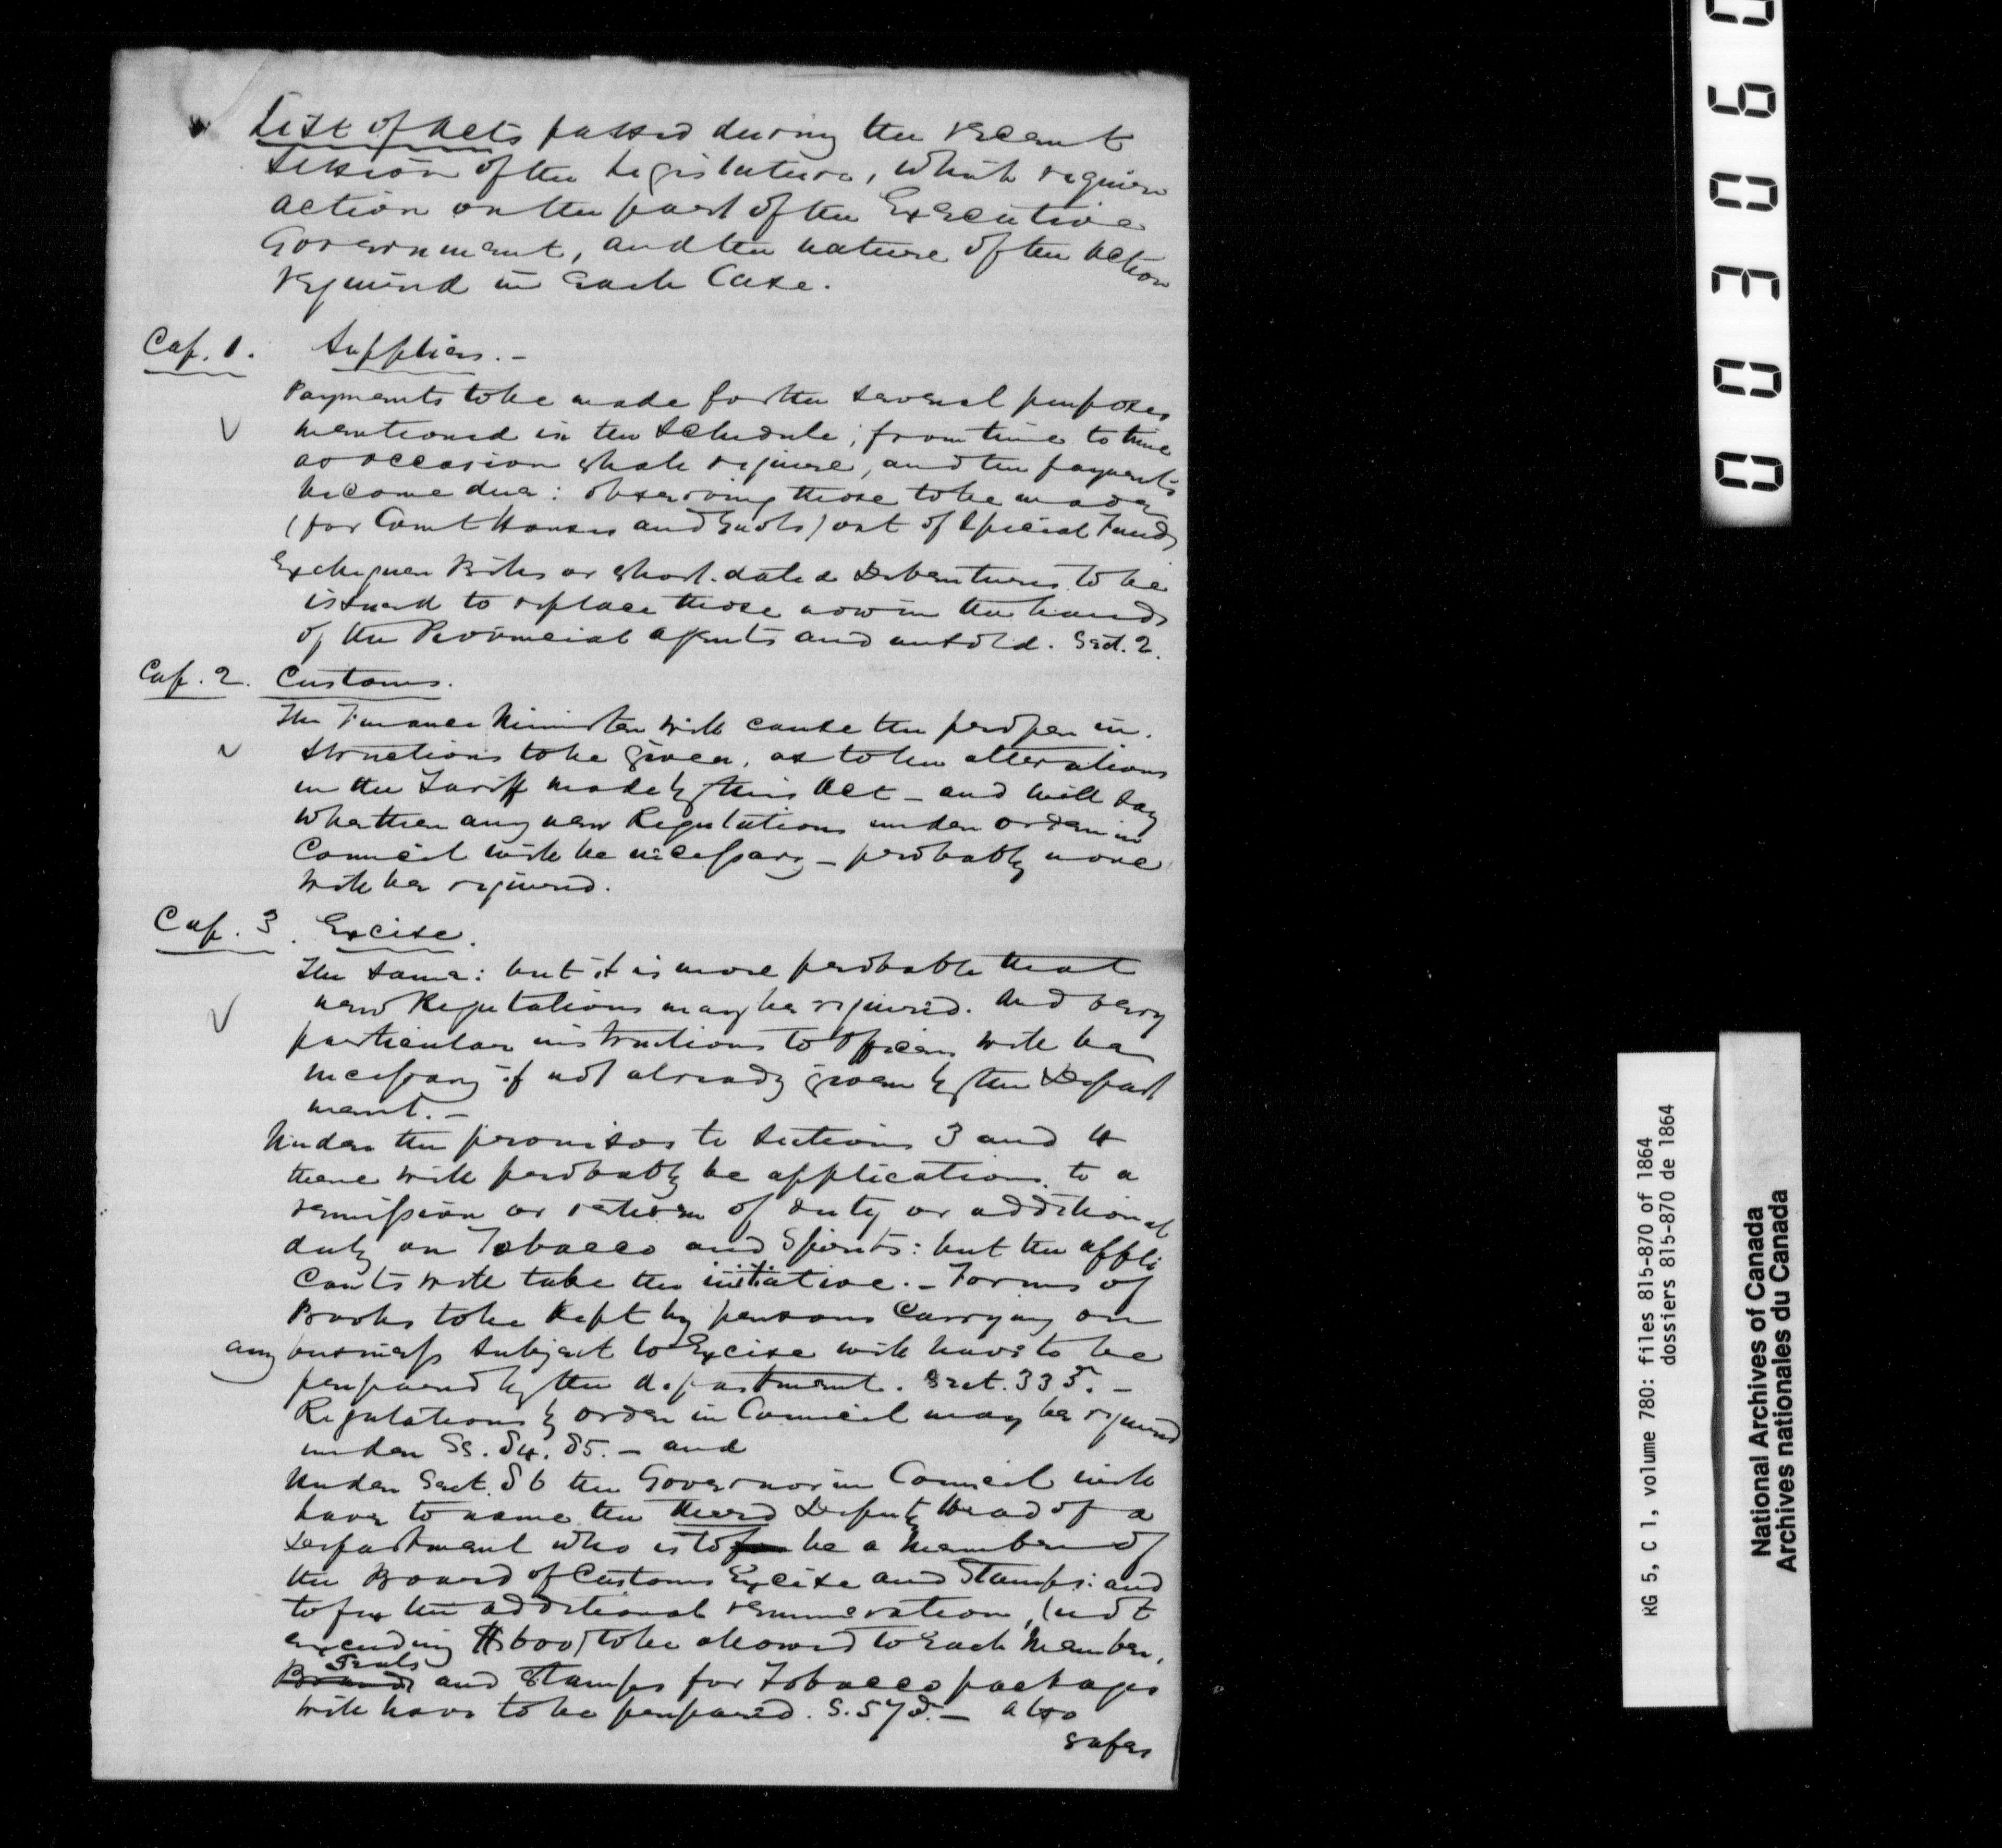 List of Acts passed during the recent
Session of the Legislature, which require
action on the part of the Executive
Government, and the nature of the action
required in each Case.
Cap. 1. Supplies. –
Payments to be made for the several purposes
mentioned in the Schedule, from time to time
as occasion shall require, and the payments
become due: observing those to be made
(for Court Houses and Gaols) out of Special Funds
Exchequer Bills or short-dated Debentures to be
issued to replace those now in the hands
of the Provincial Agents and unsold. Sect. 2.
Cap. 2. Customs.
The Finance Minister will cause the proper in-
structions to be given, as to the alterations
in the Tariff made by this Act – and will say
whether any new Regulations under order in
Council will be necessary – probably none
will be required.
Cap. 3. Excise.
The same: but it is more probable that
new Regulations may be required. And very
particular instructions to Officers will be
necessary if not already given by the Depart
ment. –
Under the provisos to Sections 3 and 4
there will probably be applications to a
remission or return of duty or additional
duty on Tobacco and Spirits: but the appli
cants will take the initiative. – Forms of
Books to be kept by persons carrying on
any business subject to Excise will have to be
prepared by the department. Sect. 33 5. –
Regulations by order in Council may be required
under SS. 84. 85. – and
Under Sect. 86 the Governor in Council will
have to name the third Deputy Head of a
Department who is to be a Member of
the Board of Customs Excise and Stamps: and
to fix the additional remuneration, (not
exceeding $600) to be allowed to each Member.
Seals
Brands and Stamps for Tobacco packages
will have to be prepared. S. 57 – also
safes
000306
RG 5, C 1, volume 780: files 815-870 of 1864
dossiers 815-870 de 1864
National Archives of Canada
Archives nationales du Canada